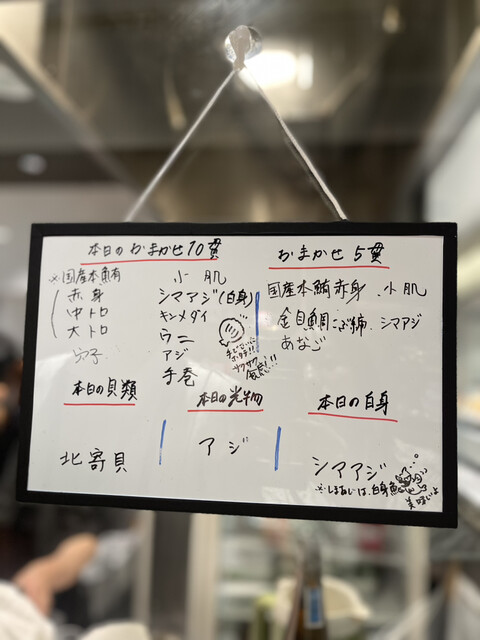 本日のおまかせ10貫
※国産本鮪有
赤身
中トロ
大トロ
穴子
小肌
シマアジ(白身)
キンメダイ
ウニ
アジ
手巻
サクサク
おまかせ 5貫
国産本鮪赤身、小肌
金目鯛こぶ締、シマアジ
あなご
本日の貝類
北寄貝
本日の光物
アジ
本日の白身
シマアジ
※しまあじは、白身魚
美味いよ